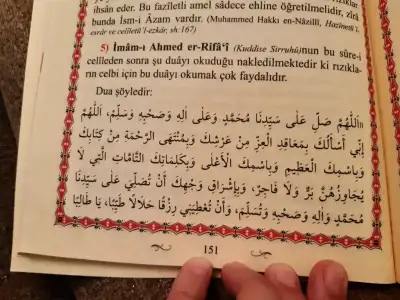 ihsân eder. Bu fazîletli amel sâdece ehline öğretilmelidir, zîrâ
bunda İsm-i Âzam vardır. (Muhammed Hakkı en-Nâzillî, Hazînetü'l-
esrâr ve celîletü'l-ezkâr, sh:167)
5) İmâm-ı Ahmed er-Rifâ'î (Kuddise Sirruhû)nun bu sûre-i
celîleden sonra şu duâyı okuduğu nakledilmektedir ki rızıkla-
rın celbi için bu duâyı okumak çok faydalıdır.
Dua şöyledir:
«اَللّٰهُمَّ صَلِّ عَلَى سَيِّدِنَا مُحَمَّدٍ وَعَلَى اٰلِهِ وَصَحْبِهِ وَسَلِّمْ، اَللّٰهُمَّ
إِنِّي أَسْأَلُكَ بِمَعَاقِدِ الْعِزِّ مِنْ عَرْشِكَ وَبِمُنْتَهَى الرَّحْمَةِ مِنْ كِتَابِكَ
وَبِاسْمِكَ الْعَظِيمِ وَبِاسْمِكَ الْأَعْلَى وَبِكَلِمَاتِكَ التَّامَّاتِ الَّتِي لَا
يُجَاوِزُهُنَّ بَرٌّ وَلَا فَاجِرٌ، وَبِإِشْرَاقِ وَجْهِكَ أَنْ تُصَلِّيَ عَلَى سَيِّدِنَا
مُحَمَّدٍ وَاٰلِهِ وَصَحْبِهِ وَتُسَلِّمَ، وَأَنْ تُعْطِيَنِي رِزْقًا حَلَالًا طَيِّبًا، يَا طَالِبًا
151